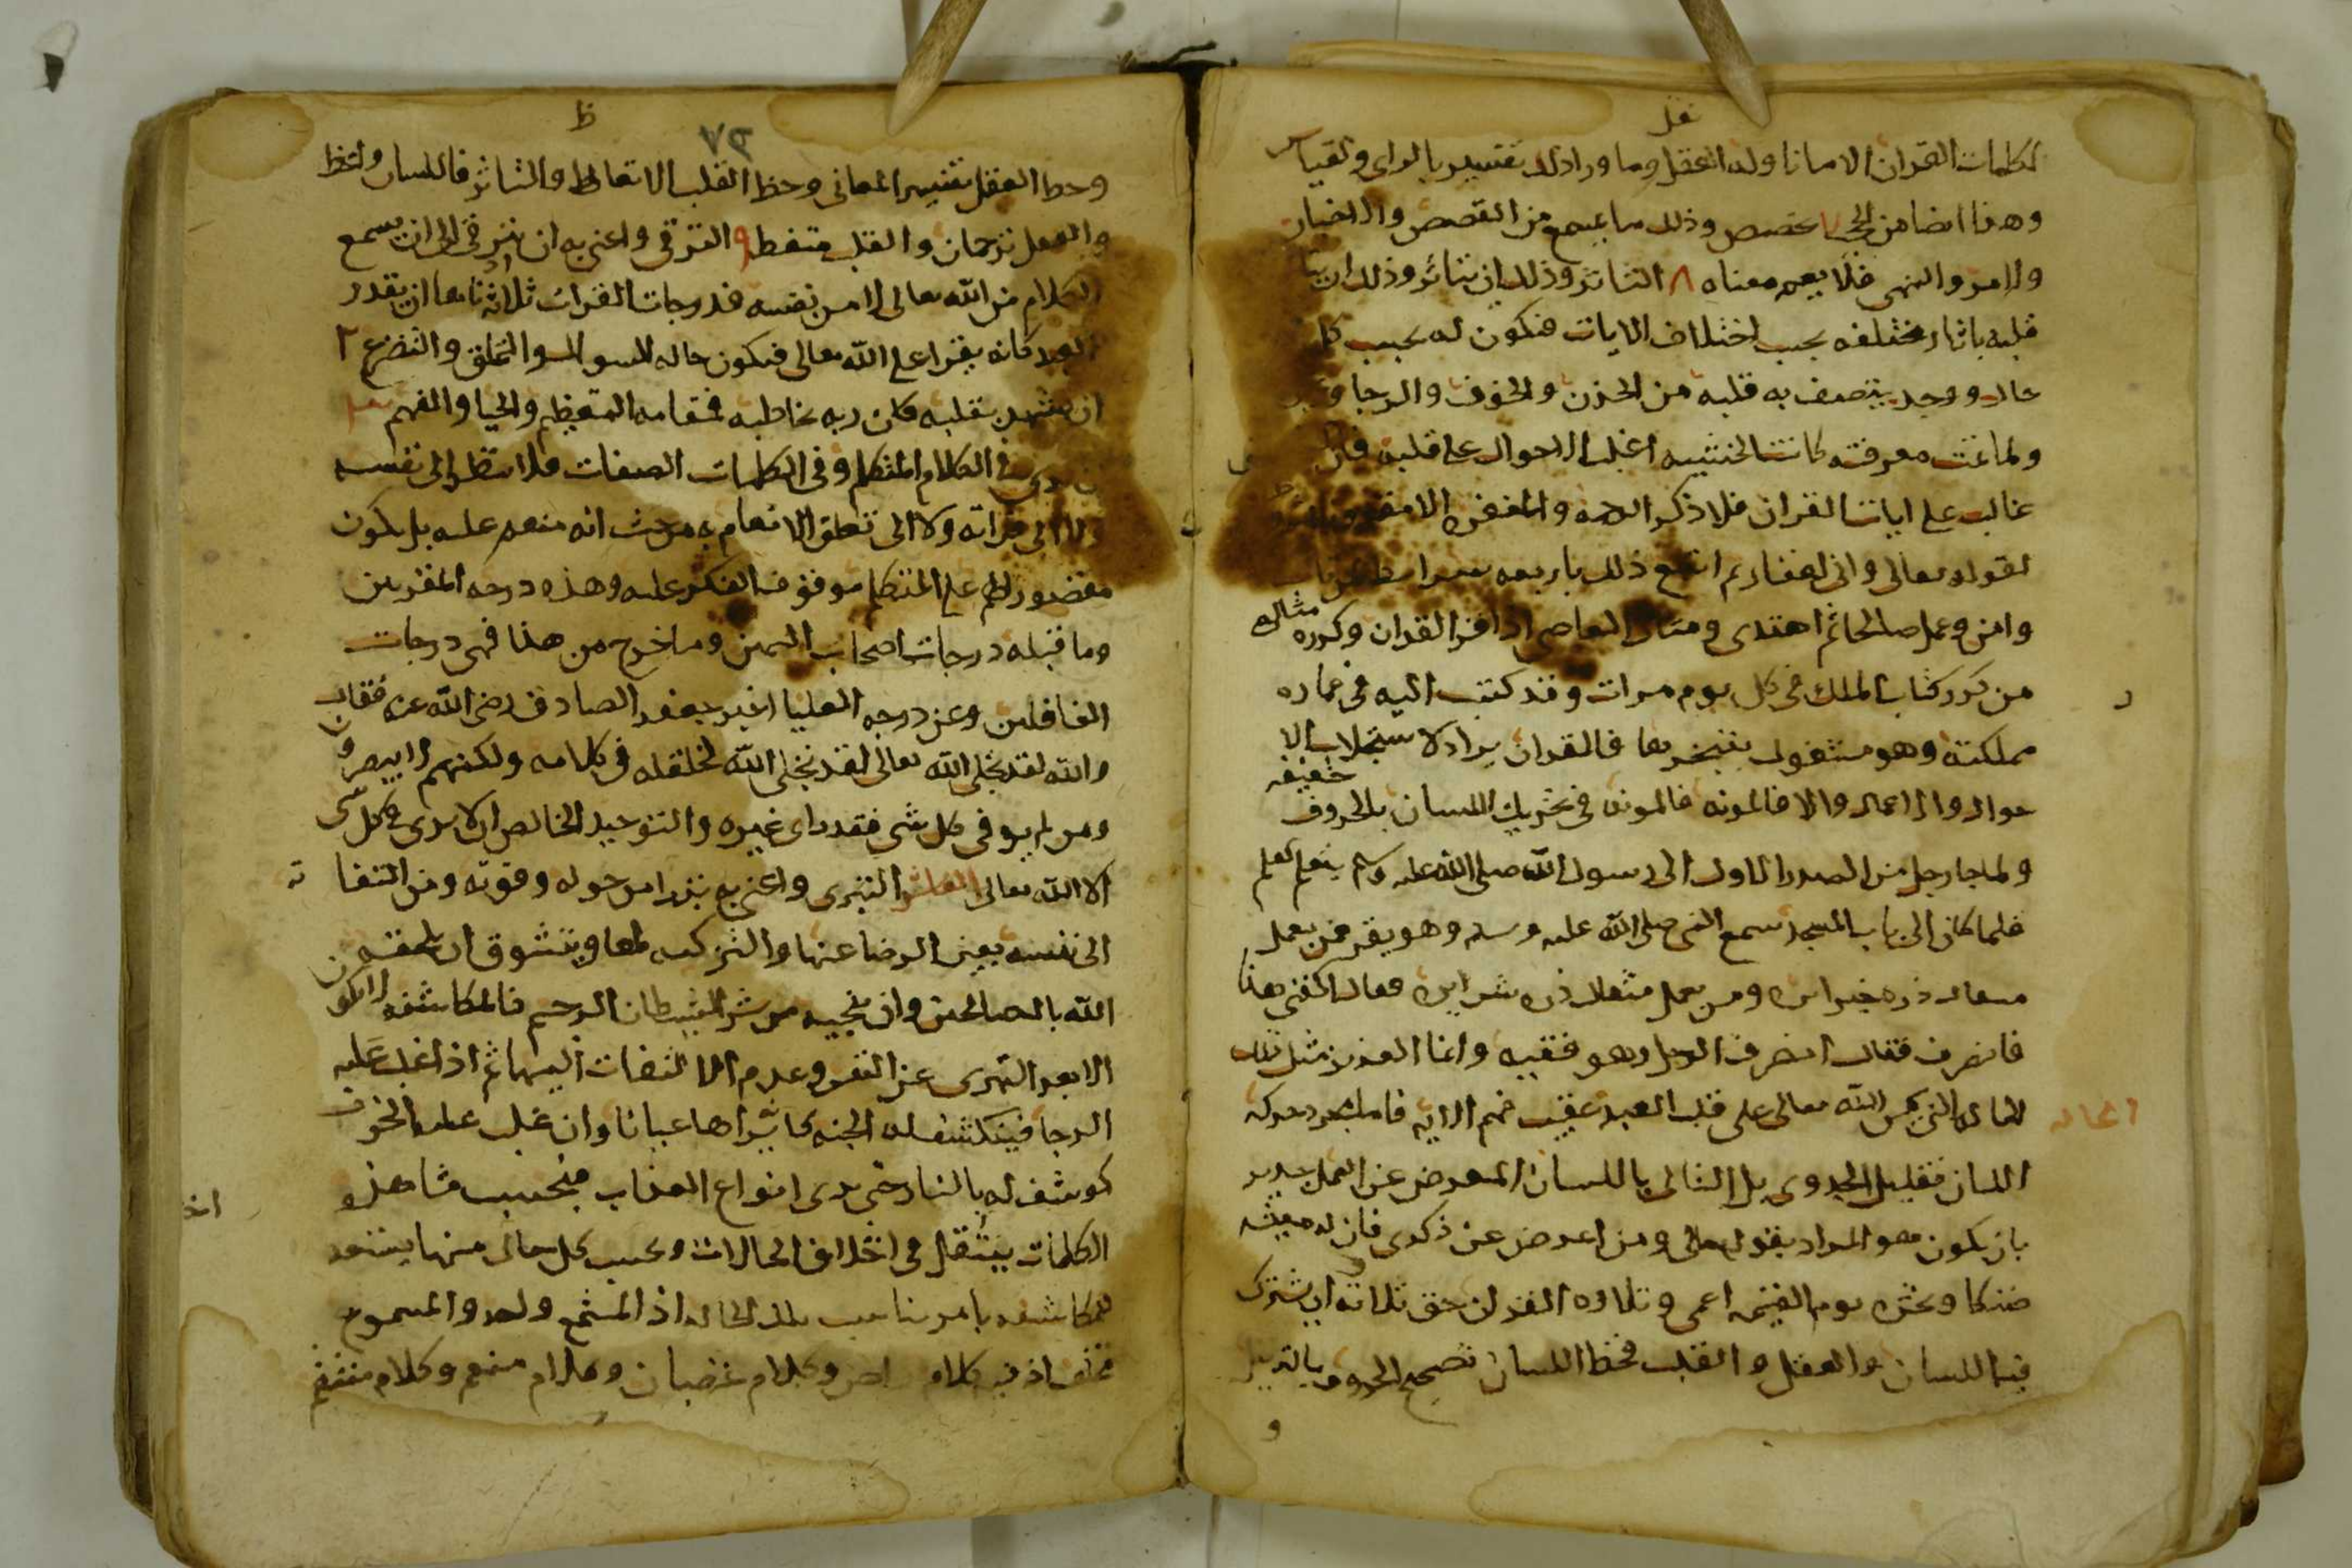 نقل
لكلمات القران الا ما تناوله العقل وما وراذلك تفسير بالراى ولقيا س
وهذا ايضا من الحجب ٧ تخصص وذلك ما يسمع من القصص والاخبار
والامر والنهى فلا يعم معناه ٨ التاثر وذلك ان يتاثر وذلك ان يتا
قلبه باثار مختلفه بحسب اختلاف الايات فيكون له بحسب كل
حال ووجد يتصف به قلبه من الحزن والخوف والرجا و
ولما تمت معرفته كانت الخشيه اغلب الاحوال على قلبه فان
غالب على ايات القران فلا ذكر الرحمه والمغفره الا مقرون
لقوله تعالى وانى لغفار ثم اتبع ذلك باربعه شرايط لمن تاب
وامن وعمل صالحا ثم اهتدى ومثال العاصى اذا قرا القران وكرره مثاله
من كرر كتاب الملك فى كل يوم مرات وقد كتب اليه فى عماره
مملكته وهو مشغول بتخريبها فالقران يراد لاستجلاب الا
حوال والاعمال والا فالمونه فالمونه فى تحريك اللسان بالحروف خفيفه
ولما جا رجل من الصدر الاول الى رسول الله صلى الله عليه وسلم يتعلم
فلما كان الى باب المسجد سمع النبى صلى الله عليه وسلم وهو يقر فمن يعمل
مثقال ذره خيرا يره ومن يعمل مثقال ذره شرا يره فقال اكفنى هذا
فانصرف فقال انصرف الرجل وهو فقيه وانما العزيز مثل تلك
الحاله التى يمن الله تعالى على قلب العبد عقيب فهم الايه فاما مجرد حركه
اللسان فقليل الجدوى بل التالى باللسان المعرض عن العمل جدير
بان يكون هو المراد بقوله تعالى ومن اعرض عن ذكرى فان له معيشه
ضنكا ونحشره يوم القيمه اعمى وتلاوه القران حق تلاوته ان يشترك
فيه اللسان والعقل والقلب فحظ اللسان تصحيح الحروف بالترتيل
و
ظ
٧٣
وحظ العقل تفسير المعانى وحظ القلب الاتعاظ والتاثر فاللسان واعظ
والعقل ترجمان والقلب متعظ ٩ الترقى واعنى به ان يترقى الى ان يسمع
الكلام من الله تعالى لا من نفسه فدرجات القران ثلاثه ادناها ان يقدر
العبد كانه يقرا على الله تعالى فيكون حاله السوال والتملق والتضرع ٢
ان يشهد بقلبه كان ربه يخاطبه فمقامه التعظيم والحيا والفهم
ان يرى فى الكلام المتكلم وفى الكلمات الصفات فلا ينظر الى نفسه
ولا الى قراته ولا الى تعلق الانعام به من حيث انه منعم عليه بل يكون
مقصور الهم على المتكلم موقوف الفكر عليه وهذه درجه المقربين
وما قبله درجات اصحاب اليمين وما خرج من هذا فهى درجات
الغافلين وعن درجه العليا اخبر جعفر الصادق رضى الله عنه فقال
والله لقد تجلى الله تعالى لقد تجلى الله لخلقه فى كلامه ولكنهم لا يبصرون
ومن لم يره فى كل شى فقد راى غيره والتوحيد الخالص ان لا يرى فى كل شى
الا الله تعالى العاشر التبرى واعنى به يتبرا من حوله وقوته ومن التفا ته
الى نفسه بعين الرضا عنها والتزكيه لها ويتشوق ان يلحقه
الله بالصالحين وان ينجيه من شر الشيطان الرجيم فالمكاشفه لا تكون
الا بعد التبرى عن النفس وعدم الالتفات اليها ثم اذا غلب عليه
الرجا فينكشف له الجنه كانه يراها عيانا وان غلب عليه الخوف
كوشف له بالنار حتى يرى انواع العذاب فبحسب مشاهده
الكلمات يتنقل فى اختلاف الحالات وبحسب كل حال منها يستعد
للمكاشفه بامر يناسب تلك الحاله اذ المستمع واحد والمسموع
مختلف اذ فيه كلام راض وكلام غضبان وكلام منعم وكلام منتقم